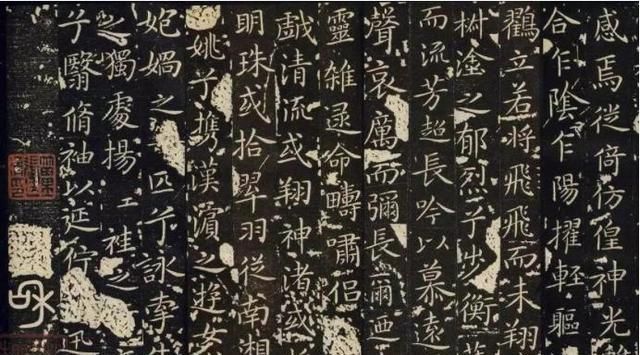 感焉徙倚仿偟神光
合乍陰乍陽擢輕軀
立若將飛飛而未翔
椒塗之郁烈兮步衡
而流芳超長吟以慕遠
聲哀厲而彌長爾迺
靈雜遝命疇嘯侶
戲清流或翔神渚或
明珠或拾翠羽從南湘
姚兮攜漢濱之遊女
媧之匹兮詠牽
之獨處揚袿之
兮翳脩袖以延佇迅